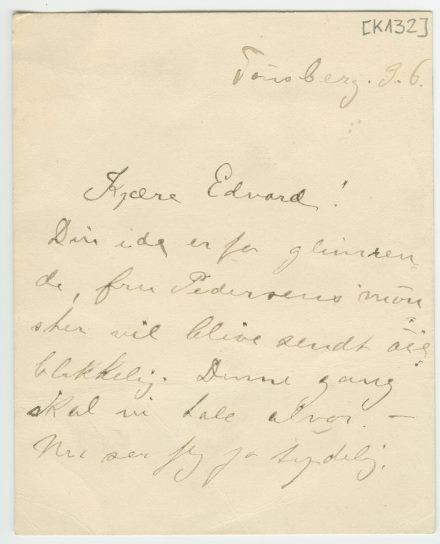 [K132]
Tönsberg. 3.6.
Kjære Edvard!
Din ide er jo glimren-
de, fru Pedersens møn
ster vil blive sendt öie
blikkelig. Denne gang
skal vi tale alvor. –
Nu ser jeg jo tydelig,